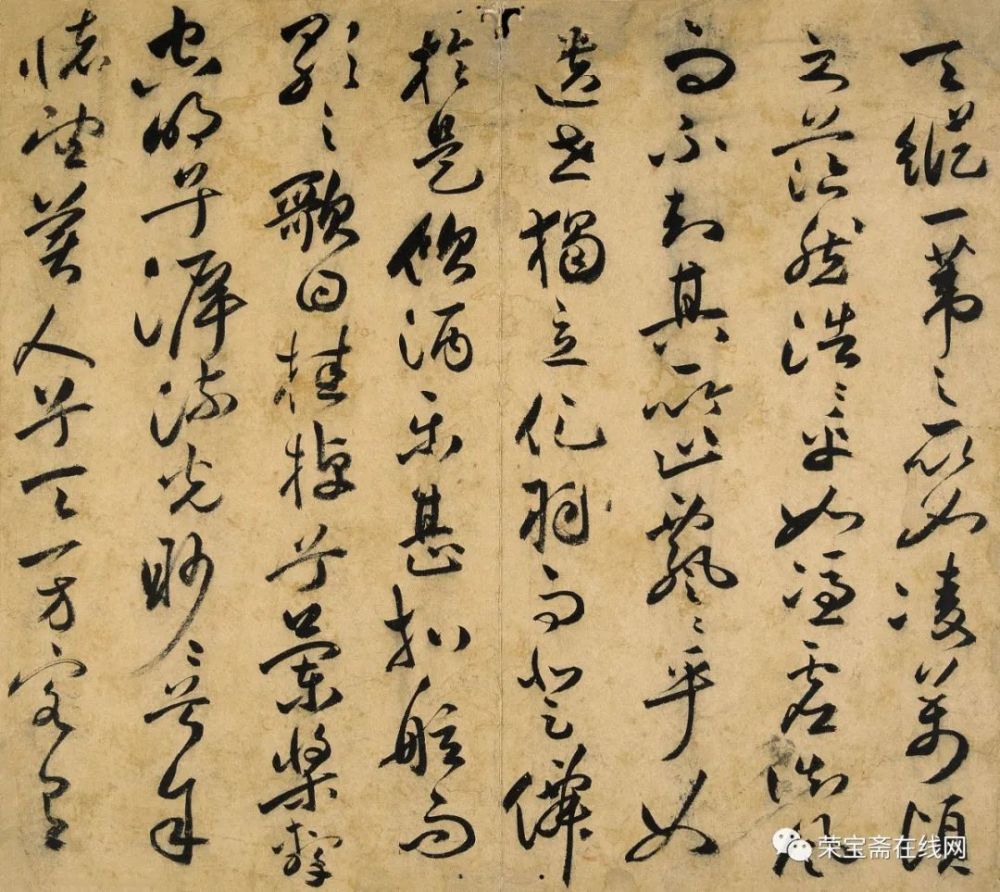 天縱一葦之所如凌萬頃
之茫然浩〻乎如馮虛御風
而不知其所止飄〻乎如
遺世獨立化羽而登僊
於是飲酒樂甚扣舷而
歌之歌曰桂棹兮蘭槳擊
空明兮泝流光渺〻兮
懷望美人兮天一方客有
荣宝斋在线网